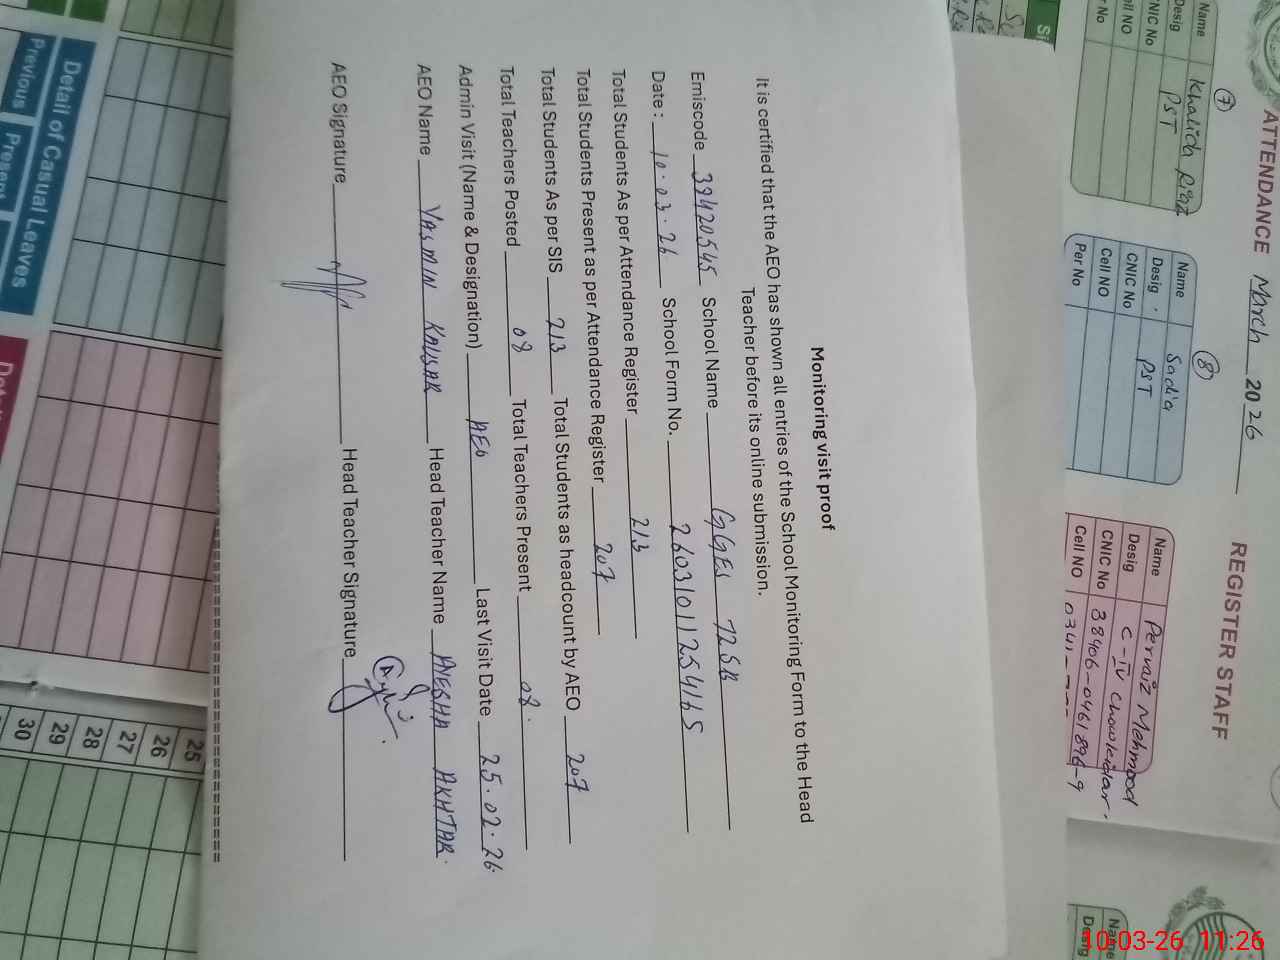 Monitoring visit proof
It is certified that the AEO has shown all entries of the School Monitoring Form to the Head
Teacher before its online submission.
Emiscode 39420545 School Name GGES 72SB
Date : 10.03.26 School Form No. 26031011254165
Total Students As per Attendance Register 213
Total Students Present as per Attendance Register 207
Total Students As per SIS 213 Total Students as headcount by AEO 207
Total Teachers Posted 08 Total Teachers Present 08.
Admin Visit (Name & Designation) AEO Last Visit Date 25.02.26.
AEO Name YASMIN KAUSAR Head Teacher Name AYESHA AKHTAR.
AEO Signature Head Teacher Signature
ATTENDANCE March 2026 REGISTER STAFF
7
Name Khalida Riaz
Desig PST
CNIC No
Cell NO
Per No
8
Name Sadia
Desig . PST
CNIC No
Cell NO
Per No
Name Pervaiz Mehmood
Desig C-IV Chowkidar.
CNIC No 38406-0461896-9
Cell NO 0341-
Name
Desig
Detail of Casual Leaves
Previous Present
25
26
27
28
29
30
10-03-26 11:26